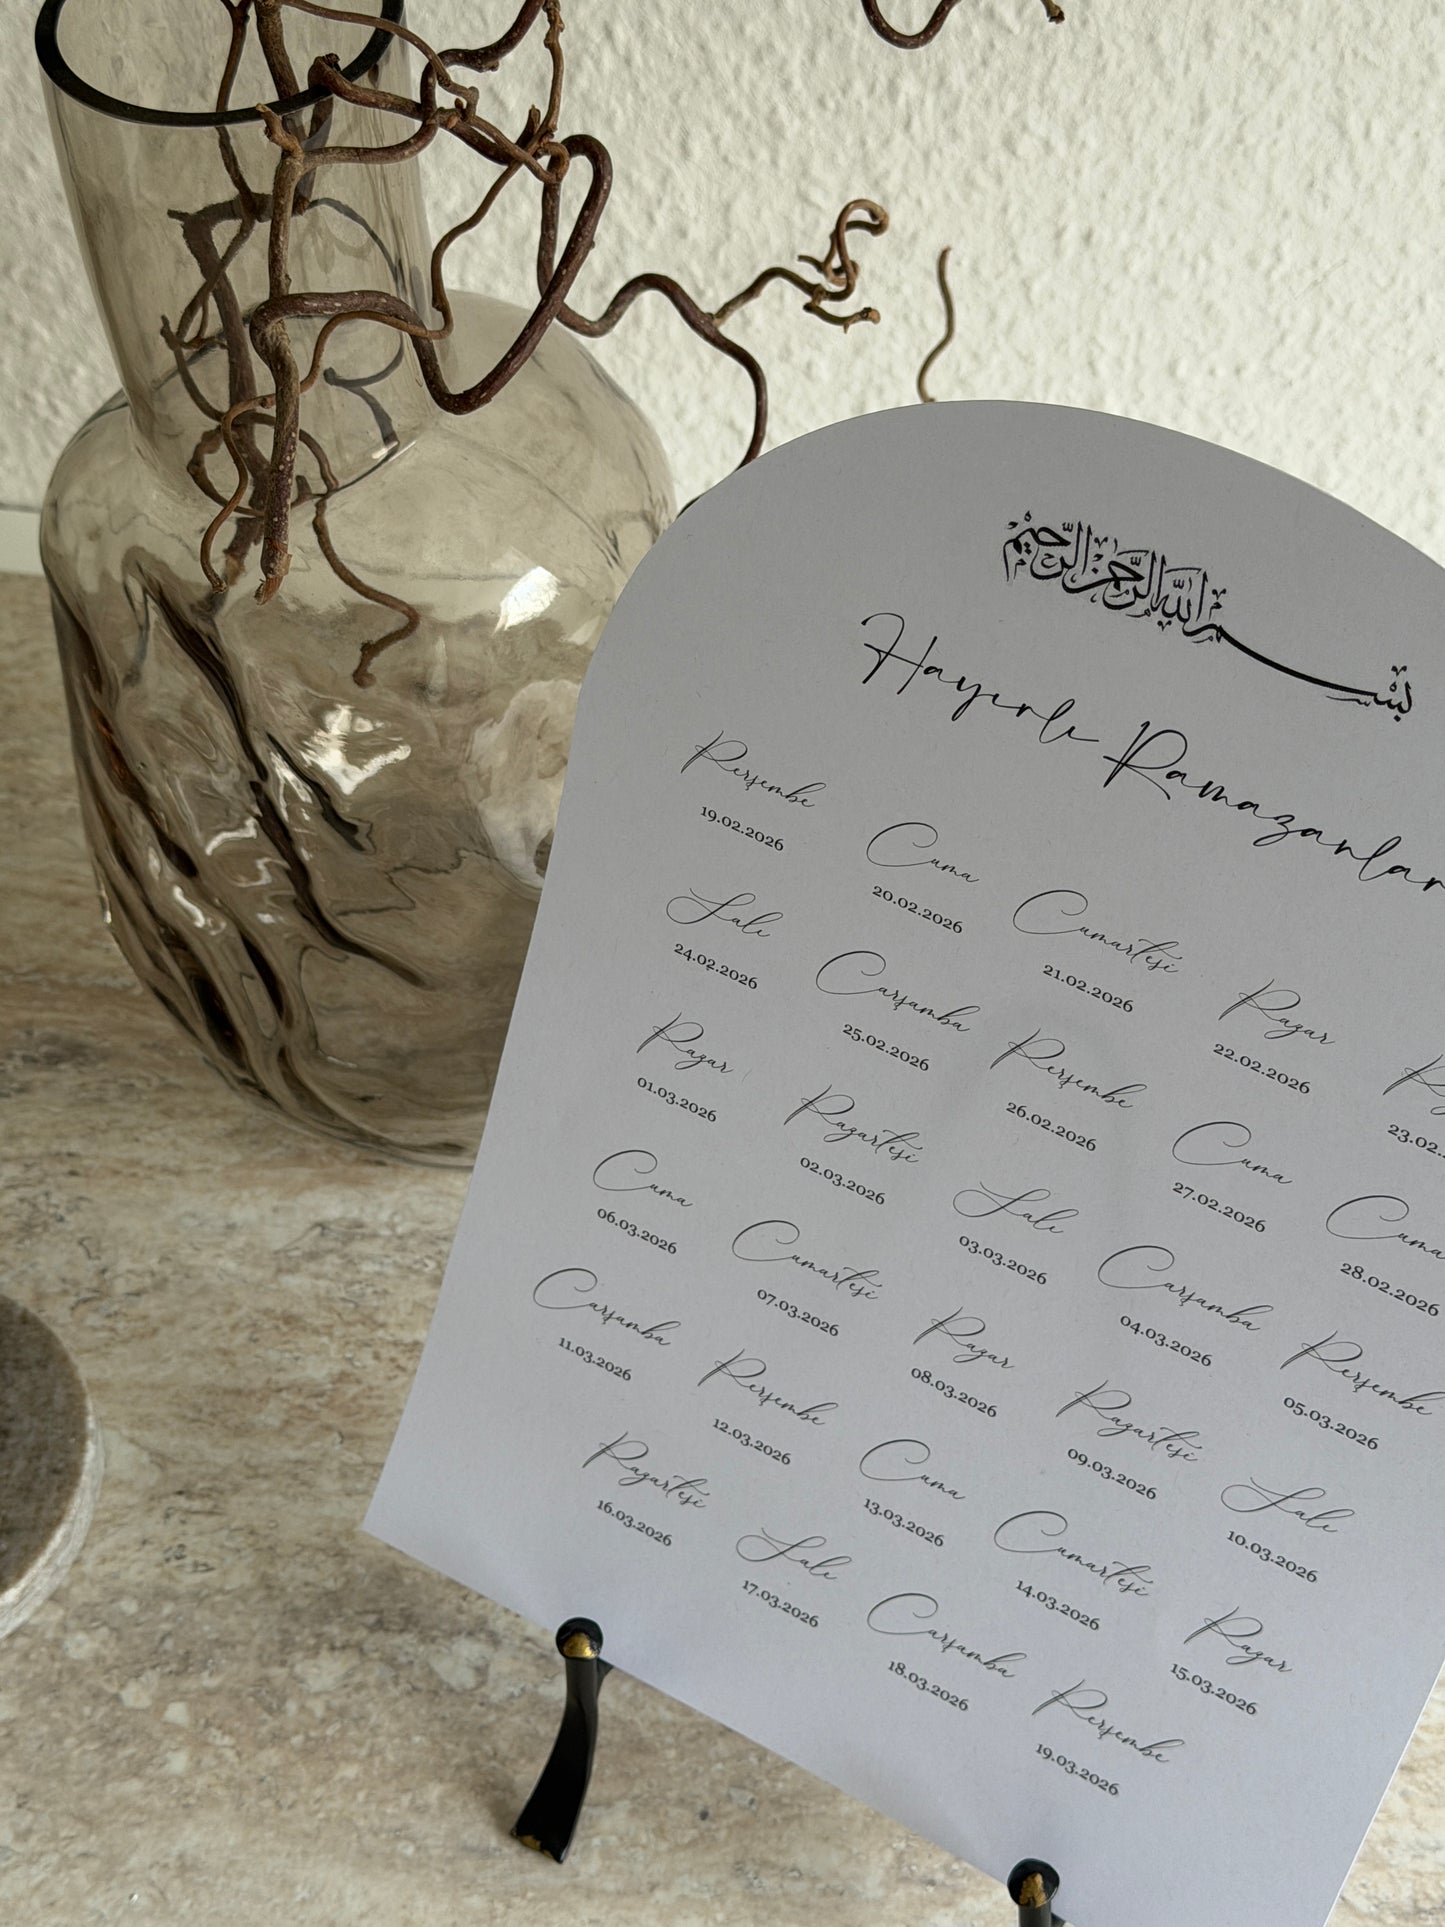 بِسْمِ اللهِ الرَّحْمٰنِ الرَّحِيْمِ
Hayırlı Ramazanlar
Perşembe Cuma Cumartesi Pazar
19.02.2026 20.02.2026 21.02.2026 22.02.2026 23.02.
Salı Carşamba Perşembe Cuma Cuma
24.02.2026 25.02.2026 26.02.2026 27.02.2026 28.02.2026
Pazar Pazartesi Salı Carşamba Perşembe
01.03.2026 02.03.2026 03.03.2026 04.03.2026 05.03.2026
Cuma Cumartesi Pazar Pazartesi Salı
06.03.2026 07.03.2026 08.03.2026 09.03.2026 10.03.2026
Carşamba Perşembe Cuma Cumartesi Pazar
11.03.2026 12.03.2026 13.03.2026 14.03.2026 15.03.2026
Pazartesi Salı Carşamba Perşembe
16.03.2026 17.03.2026 18.03.2026 19.03.2026